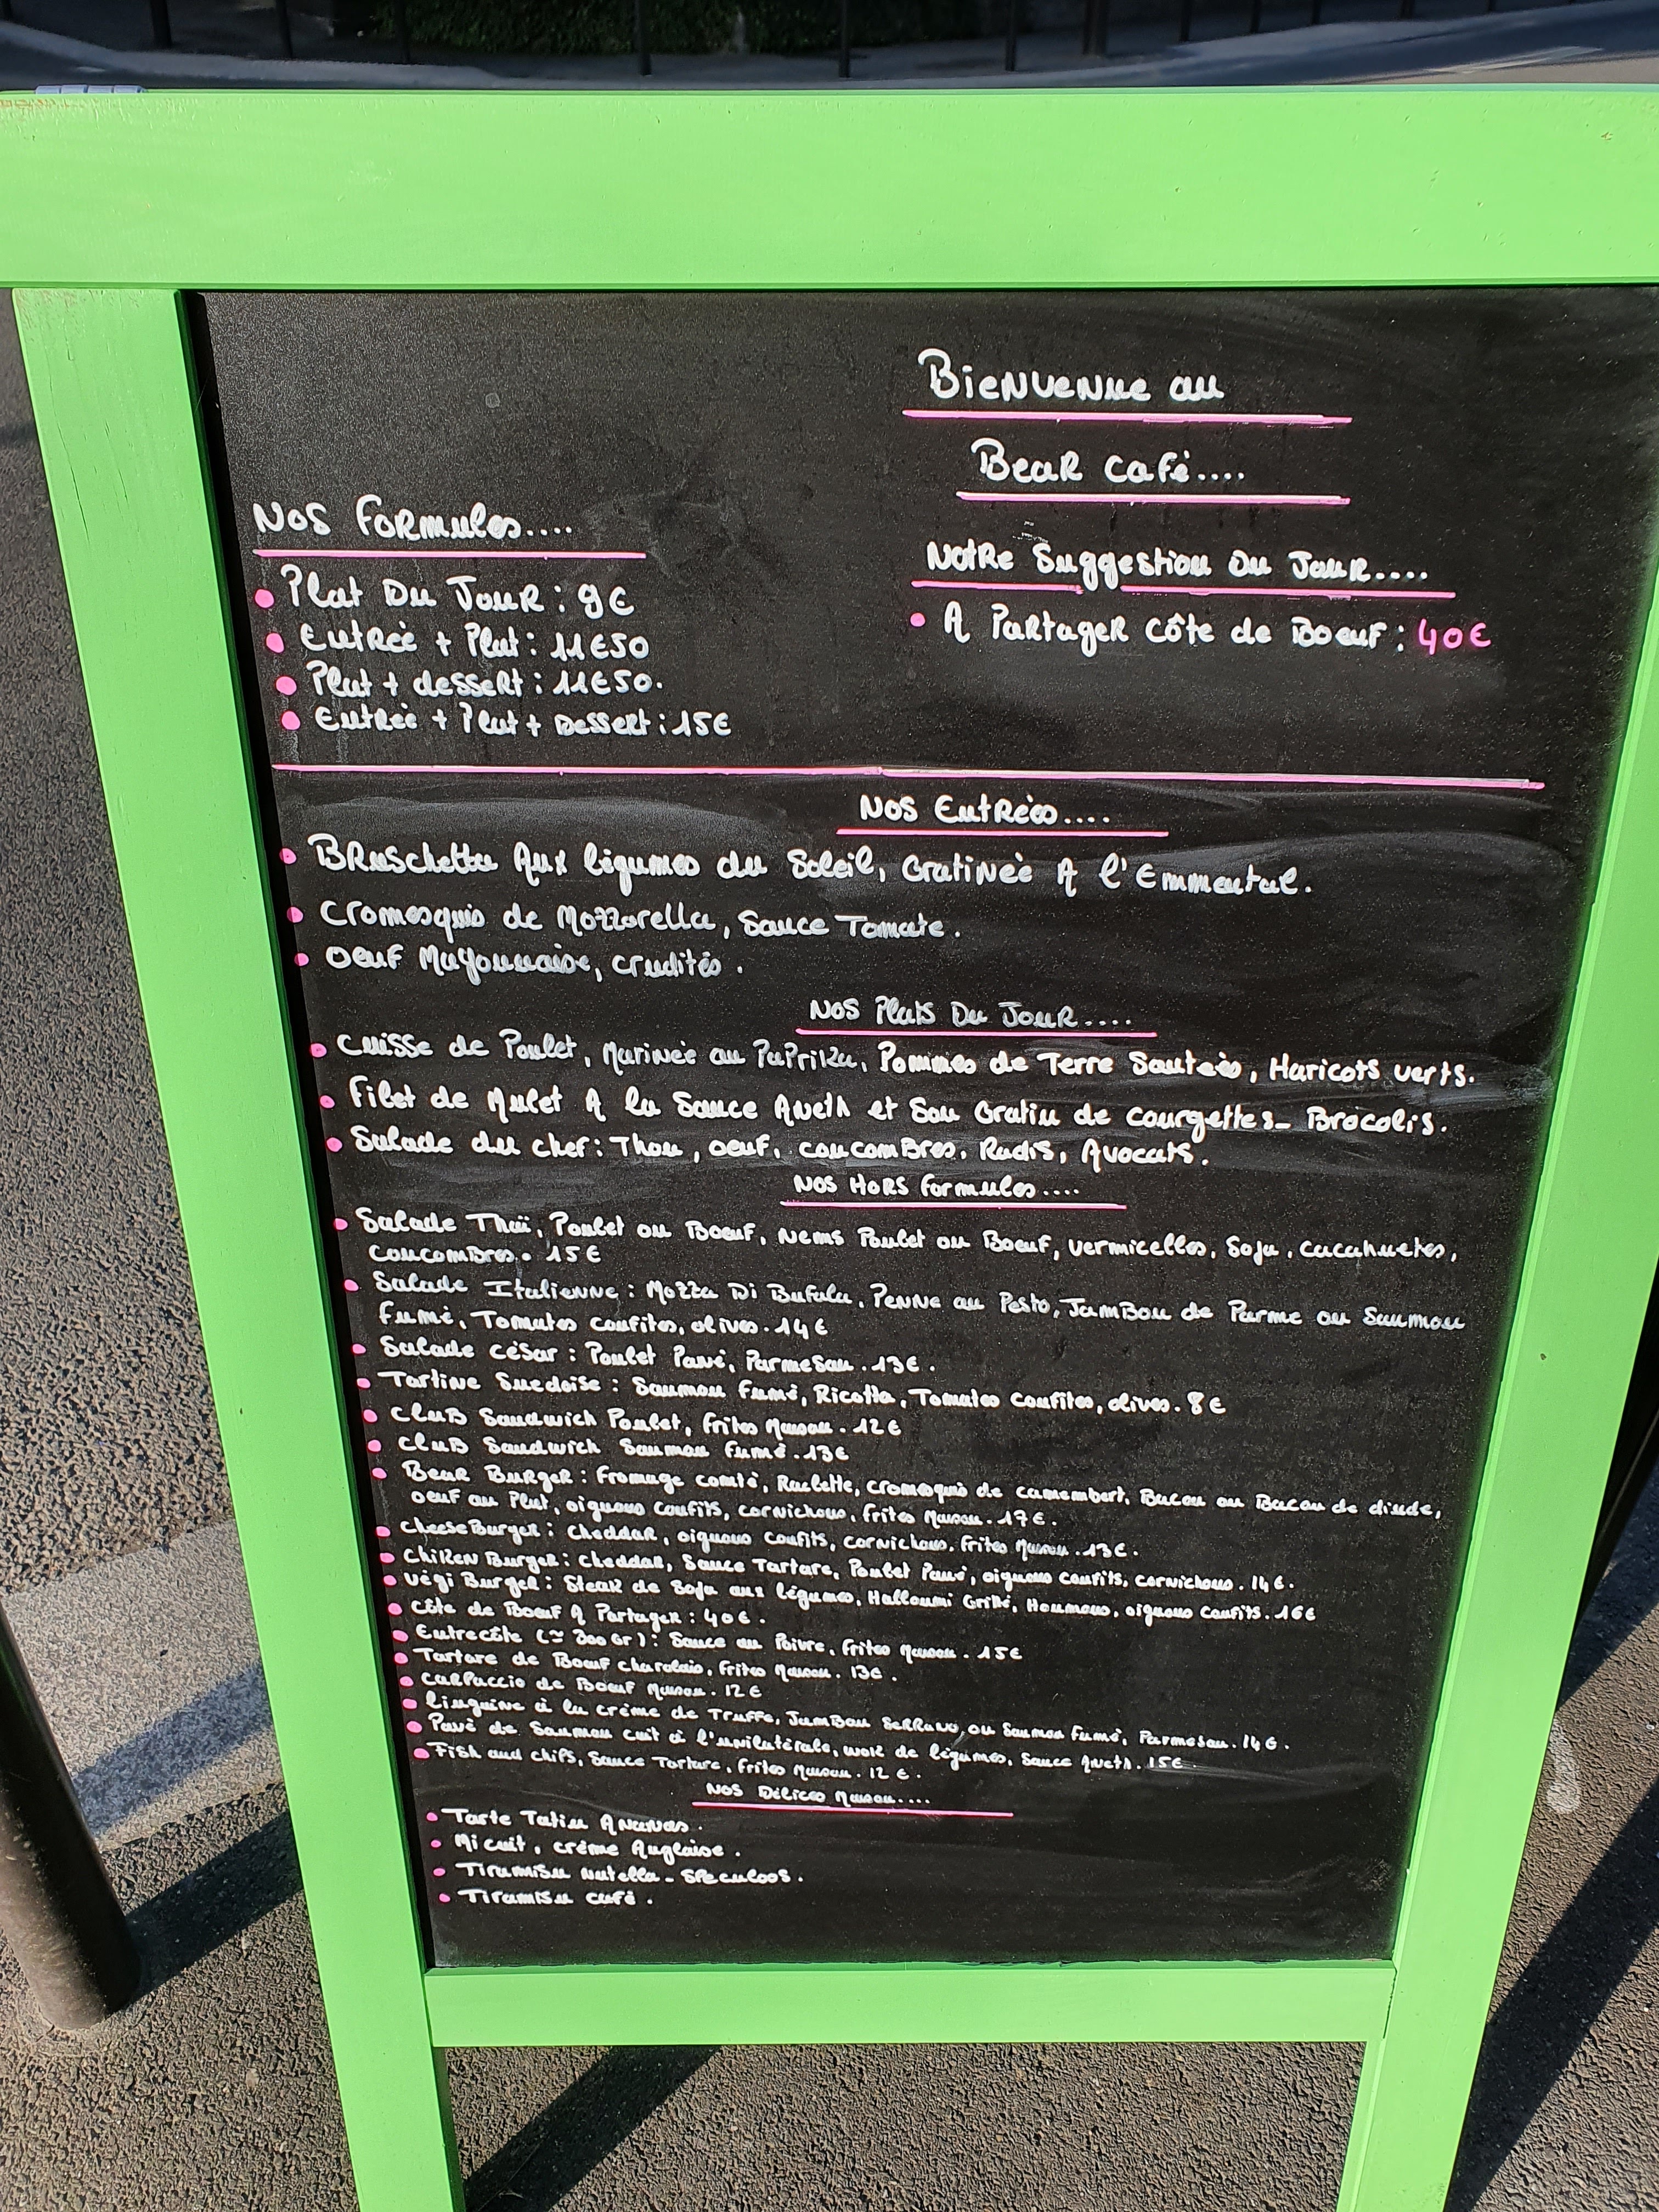 Bienvenue au
Bear Café....
Nos Formules....
Plat Du Jour : 9€
Entrée + Plat : 11€50
Plat + dessert : 11€50.
Entrée + Plat + Dessert : 15€
Notre Suggestion Du Jour....
A Partager Côte de Boeuf : 40€
Nos Entrées....
Bruschetta Aux légumes du Soleil, Gratinée A l'Emmental.
Cromesquis de Mozzarella, Sauce Tomate.
Oeuf Mayonnaise, crudités.
Nos Plats Du Jour....
Cuisse de Poulet, Marinée au Paprika, Pommes de Terre Sautées, Haricots verts.
Filet de Mulet A la Sauce Aneth et Son Gratin de courgettes - Brocolis.
Salade du chef : Thon, oeuf, concombres, Radis, Avocats.
Nos Hors Formules....
Salade Thaï, Poulet ou Boeuf, Nems Poulet ou Boeuf, vermicelles, Soja, cacahuetes,
concombres. 15€
Salade Italienne : Mozza Di Bufala, Penne au Pesto, Jambon de Parme ou Saumon
fumé, Tomates confites, olives. 14€
Salade césar : Poulet Pané, Parmesan. 13€.
Tartine Suedoise : Saumon fumé, Ricotta, Tomates confites, olives. 8€
Club Sandwich Poulet, frites Maison. 12€
Club Sandwich Saumon fumé. 13€
Bear Burger : fromage comté, Raclette, cromesquis de camembert, Bacon ou Bacon de dinde,
oeuf au Plat, oignons confits, cornichons, frites Maison. 17€.
CheeseBurger : cheddar, oignons confits, cornichons. frites Maison. 13€.
Chiken Burger : cheddar, Sauce Tartare, Poulet Pané, oignons confits, cornichons. 14€.
Végi Burger : Steak de Soja aux légumes, Halloumi Grillé, Houmous, oignons confits. 16€
Côte de Boeuf A Partager : 40€.
Entrecôte (≃ 300 Gr) : Sauce au Poivre, frites Maison. 15€
Tartare de Boeuf charolais, frites Maison. 13€.
Carpaccio de Boeuf Maison. 12€
Linguine à la crème de Truffe, Jambon Serrano, ou Saumon fumé, Parmesan. 14€.
Pavé de Saumon cuit à l'unilatérale, wok de légumes, Sauce Aneth. 15€.
Fish and chips, Sauce Tartare, frites Maison. 12€.
Nos Délices Maison....
Tarte Tatin Ananas.
Mi cuit, crème Anglaise.
Tiramisu Nutella - Speculoos.
Tiramisu café.